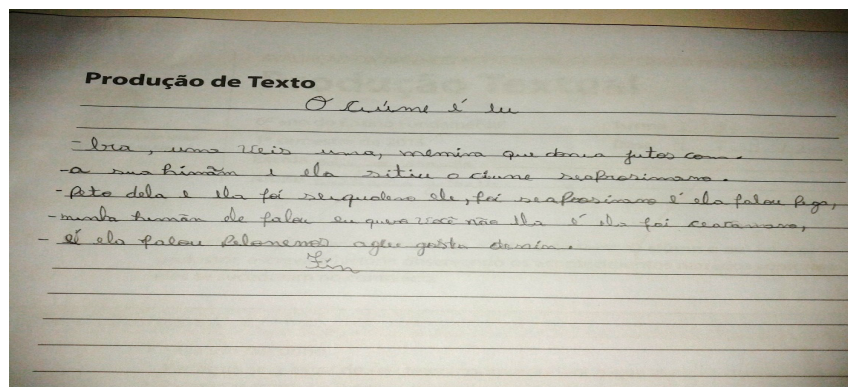 Produção de Texto
O Ciúme é eu
- Era, uma veis uma, memina que dava jutos com.
- a sua himãm e ela sitiu o ciume seaprosimano.
- peto dela e ela foi ele, foi seaprosimano é ela falou pega,
- minha himãm ele falou eu quero você não ela é ela foi
- ei ela falou pelonemos ageu gosta demin.
Fin